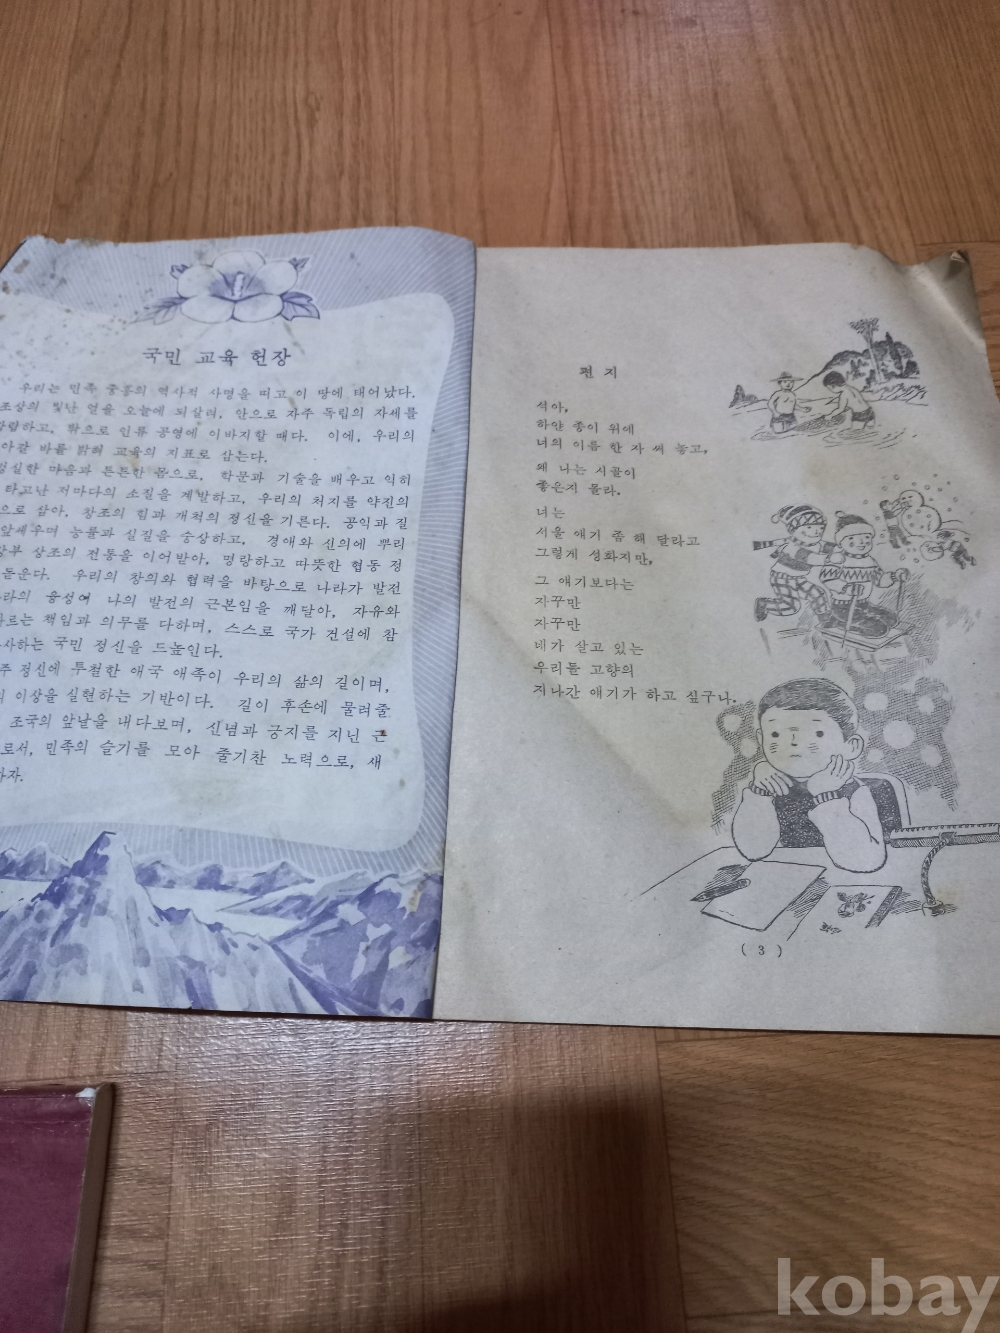 국민 교육 헌장
우리는 민족 중흥의 역사적 사명을 띠고 이 땅에 태어났다.
조상의 빛난 얼을 오늘에 되살려, 안으로 자주 독립의 자세를
확립하고, 밖으로 인류 공영에 이바지할 때다. 이에, 우리의
아갈 바를 밝혀 교육의 지표로 삼는다.
성실한 마음과 튼튼한 몸으로, 학문과 기술을 배우고 익히
타고난 저마다의 소질을 계발하고, 우리의 처지를 약진의
으로 삼아, 창조의 힘과 개척의 정신을 기른다. 공익과 질
앞세우며 능률과 실질을 숭상하고, 경애와 신의에 뿌리
상부 상조의 전통을 이어받아, 명랑하고 따뜻한 협동 정
돋운다. 우리의 창의와 협력을 바탕으로 나라가 발전
라의 융성이 나의 발전의 근본임을 깨달아, 자유와
따르는 책임과 의무를 다하며, 스스로 국가 건설에 참
사하는 국민 정신을 드높인다.
주 정신에 투철한 애국 애족이 우리의 삶의 길이며,
의 이상을 실현하는 기반이다. 길이 후손에 물려줄
조국의 앞날을 내다보며, 신념과 긍지를 지닌 근
로서, 민족의 슬기를 모아 줄기찬 노력으로, 새
하자.
편 지
석아,
하얀 종이 위에
너의 이름 한 자 써 놓고,
왜 나는 시골이
좋은지 몰라.
너는
서울 얘기 좀 해 달라고
그렇게 성화지만,
그 얘기보다는
자꾸만
자꾸만
네가 살고 있는
우리들 고향의
지나간 얘기가 하고 싶구나.
( 3 )
kobay